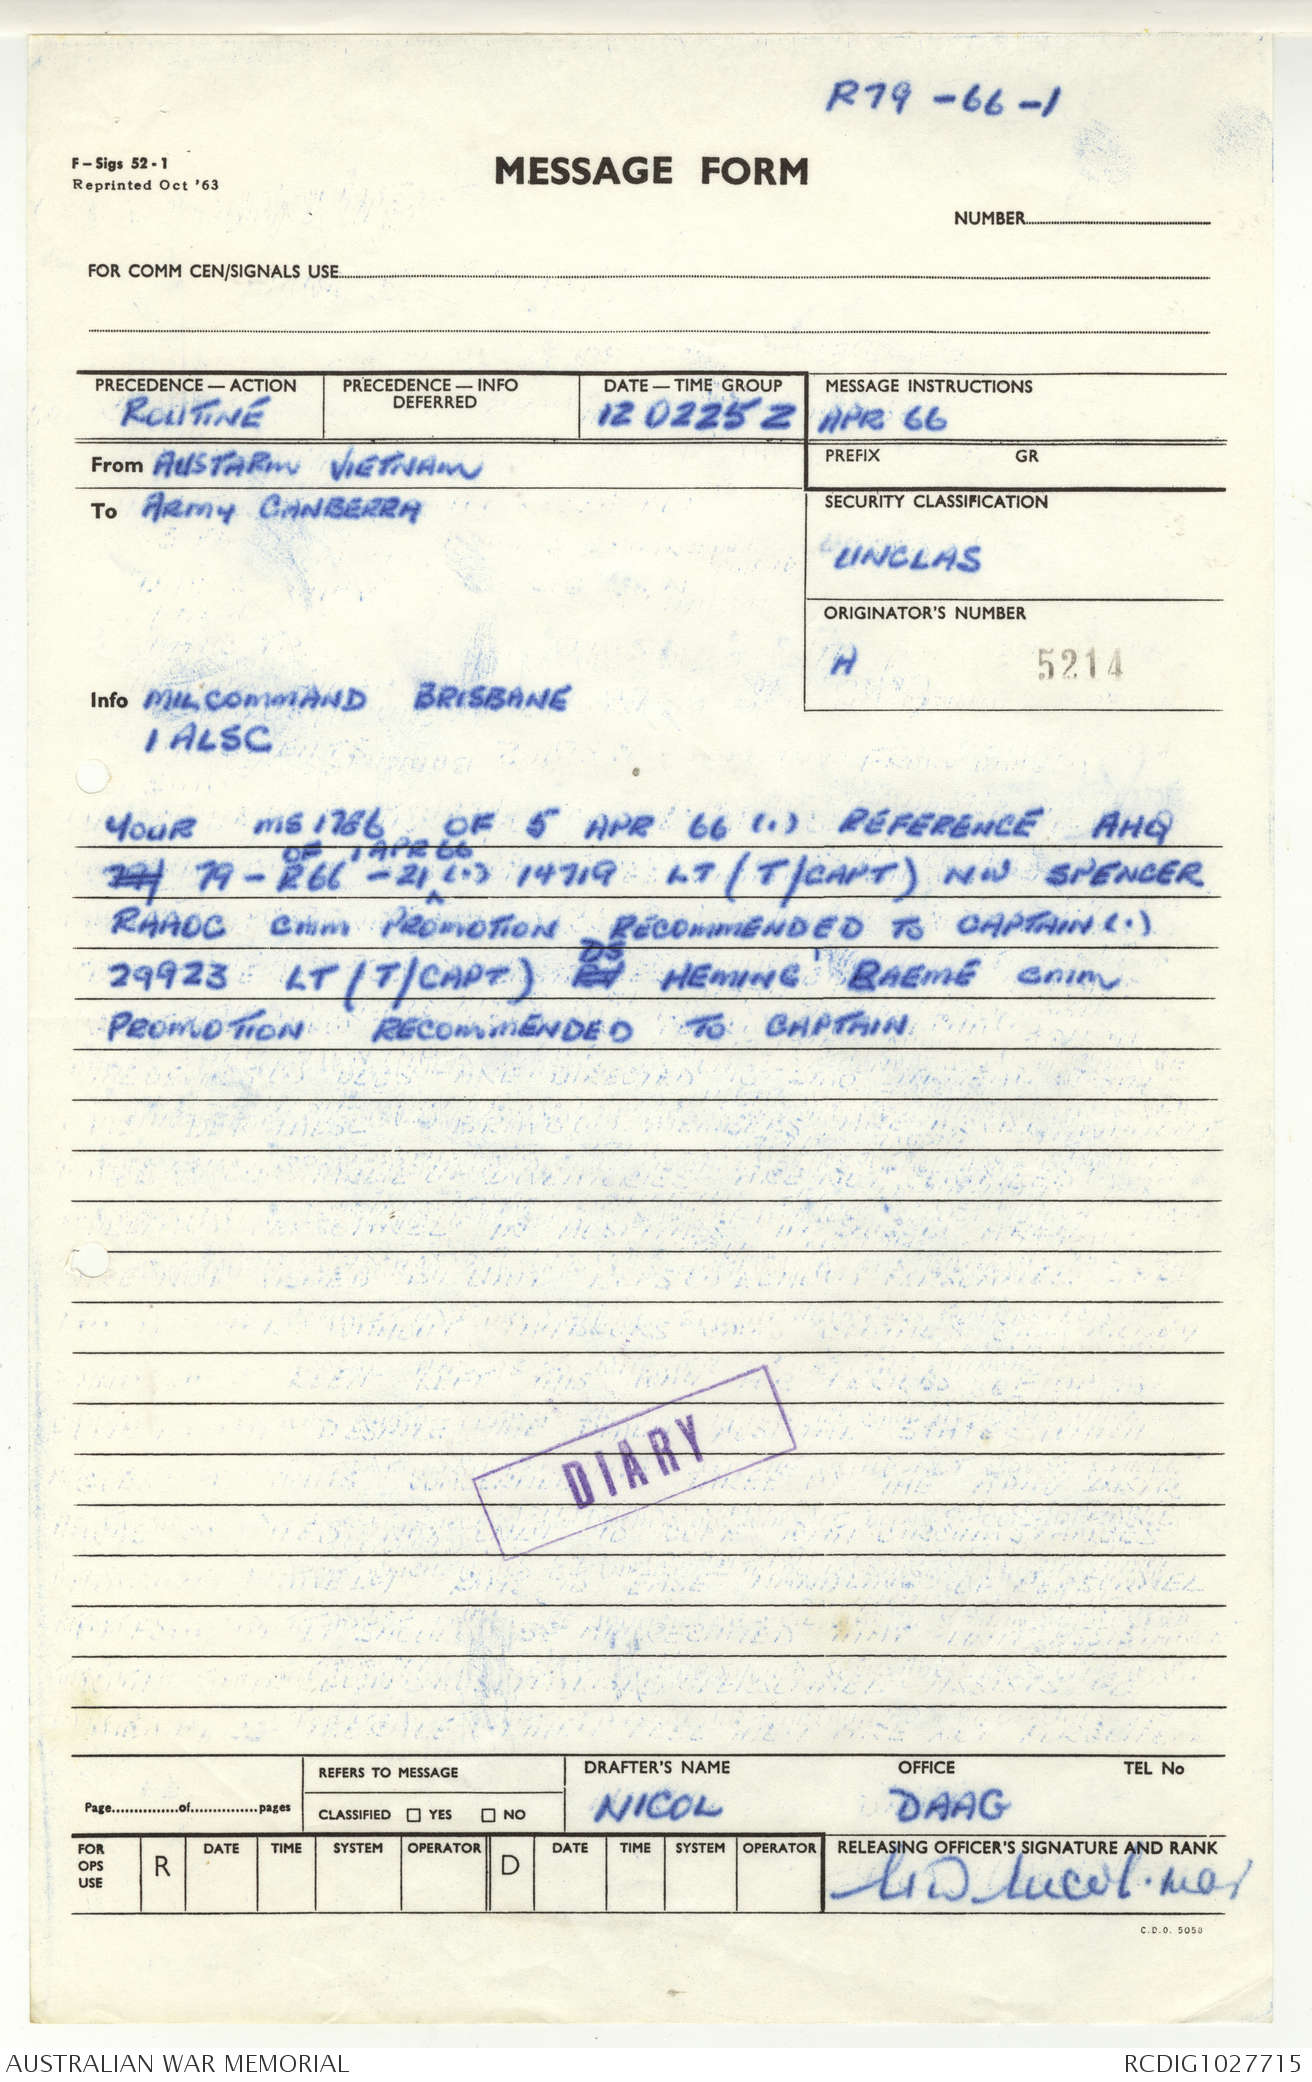 R79-66-1
F-Sigs 52-1
Reprinted Oct '63
MESSAGE FORM
NUMBER
FOR COMM CEN/SIGNALS USE
PRECEDENCE — ACTION
ROUTINE
PRECEDENCE — INFO
DEFERRED
DATE — TIME GROUP
120225Z
MESSAGE INSTRUCTIONS
APR 66
From AUSTARM VIETNAM
PREFIX GR
To ARMY CANBERRA
SECURITY CLASSIFICATION
UNCLAS
ORIGINATOR'S NUMBER
A 5214
Info MILCOMMAND BRISBANE
1 ALSC
YOUR MS1786 OF 5 APR 66 (.) REFERENCE AHQ
OF 1 APR 66
79-R66-21 (.) 14719 LT (T/CAPT) NW SPENCER
RAAOC CMM PROMOTION RECOMMENDED TO CAPTAIN (.)
DS
29923 LT (T/CAPT) HEMING RAEME CMM
PROMOTION RECOMMENDED TO CAPTAIN
DIARY
Page of pages
REFERS TO MESSAGE
CLASSIFIED YES NO
DRAFTER'S NAME
NICOL
OFFICE
DAAG
TEL No
FOR OPS USE
R
DATE TIME SYSTEM OPERATOR
D
DATE TIME SYSTEM OPERATOR
RELEASING OFFICER'S SIGNATURE AND RANK
Nicol. Maj
C.D.O. 5050
AUSTRALIAN WAR MEMORIAL
RCDIG1027715